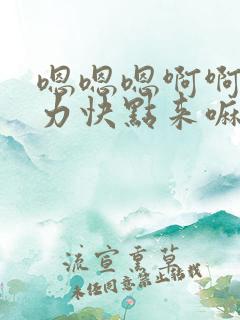 嗯嗯嗯啊啊
力快點来嘛
流宣熏草
未经同意禁止转载